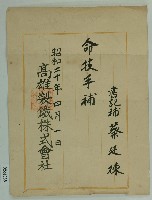 書記補 蔡廷棟
命技手補
昭和二十年四月一日
高雄製鐵株式會社